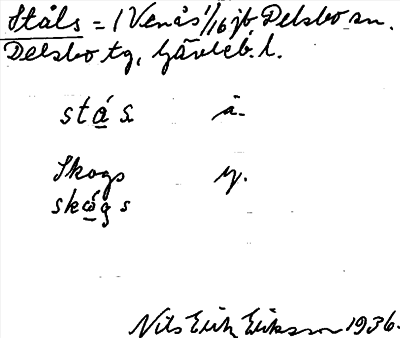 Ståls = (Venås 1/16 jb Delsbo sn.
Delsbo tg, Gävleb. l.
stǻs. ä.
Skogs y.
skǫ́gs
Nils Erik Eriksson 1936.